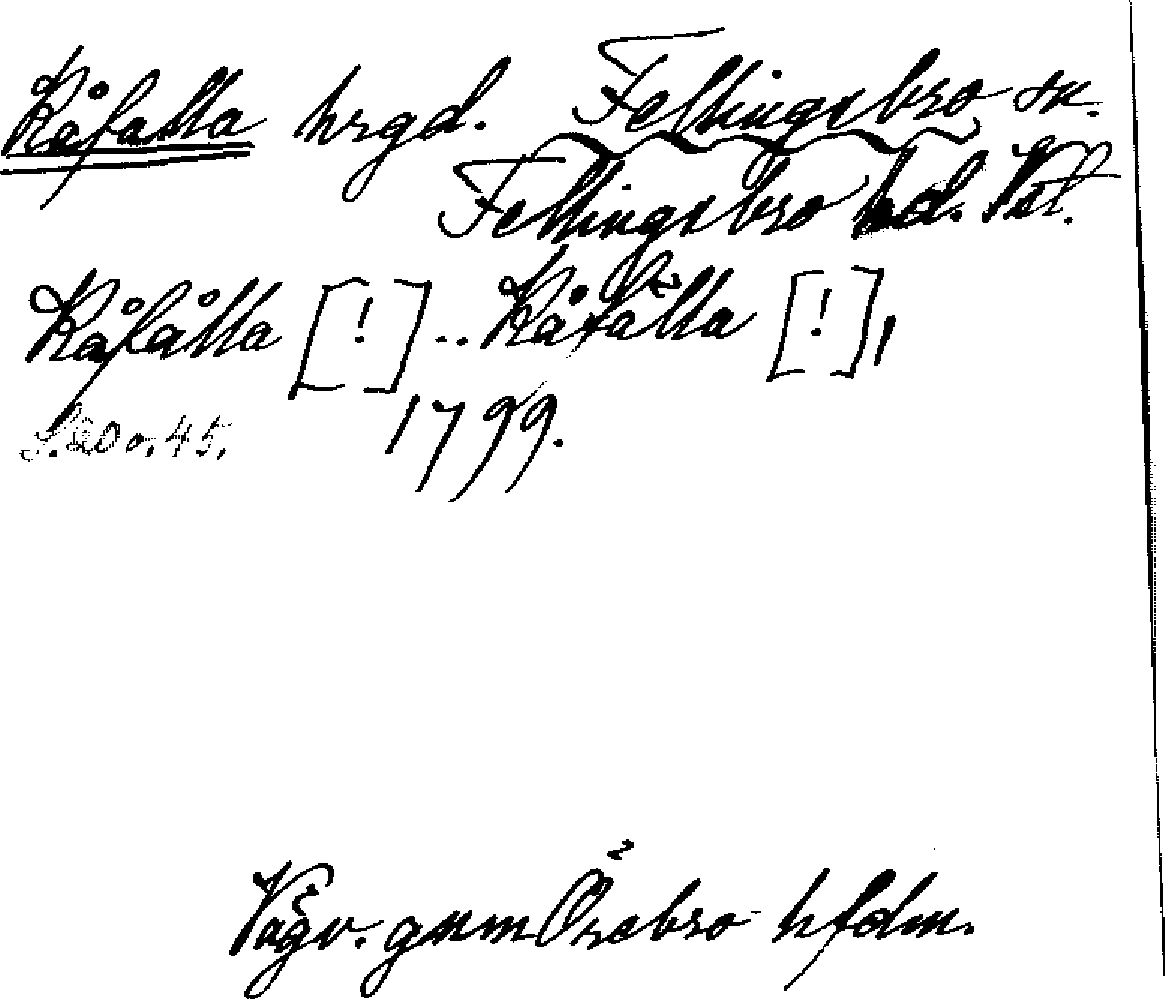 Kåfalla hrgd. Fellingsbro sn.
Fellingsbro hd. Vstl.
Kåfålla [!] .. Kåfälla [!],
S. 20 o. 45. 1799.
Vägv. gnm Örebro hfdm.